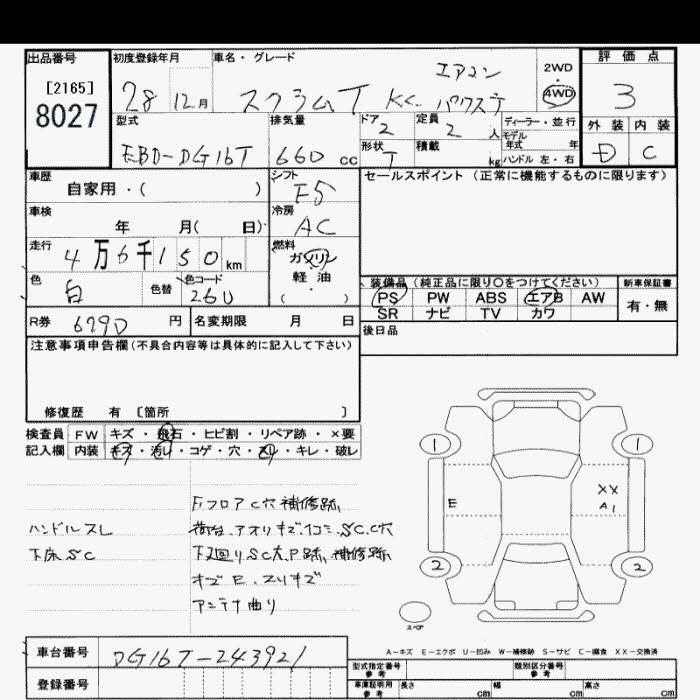 出品番号 初度登録年月 車名・グレード 評価点
[2165]
8027
28 12月 スクラムT KC エアコン パワステ
2WD
・
4WD
3
型式 排気量 ドア 定員 ディーラー・並行 外装 内装
EBD-DG16T 660 cc 2 2 人
モデル年式 年
形状 T 積載 kg ハンドル 左・右
D C
車歴 自家用・( ) シフト F5 セールスポイント(正常に機能するものに限ります)
車検 年 月( 日) 冷房 AC
走行 4万6千150 km 燃料 ガソリン 軽油 ( )
色 白 色替 色コード 26U
装備品(純正品に限り○をつけてください) 新車保証書
PS PW ABS エアB AW 有・無
SR ナビ TV カワ
R券 6790 円 名変期限 月 日 後日品
注意事項申告欄(不具合内容等は具体的に記入して下さい)
修復歴 有 [箇所 ]
検査員 FW キズ・飛石・ヒビ割・リペア跡・×要
記入欄 内装 キズ・汚れ・コゲ・穴・スレ・キレ・破レ
Fフロア C穴 補修跡
ハンドルスレ 荷台、アオリキズ、凹ミ、SC、C穴
下廻りSC大、P跡、補修跡
下床SC
キズ E、スリキズ
アンテナ曲り
1 1
E XX
A1
2 2
スペア
A-キズ E-エクボ U-凹み W-補修跡 S-サビ C-腐食 XX-交換済
車台番号 DG16T-243921
型式指定番号 参考 類別区分番号 参考
登録番号
車庫証明用 参考 長さ cm 幅 cm 高さ cm